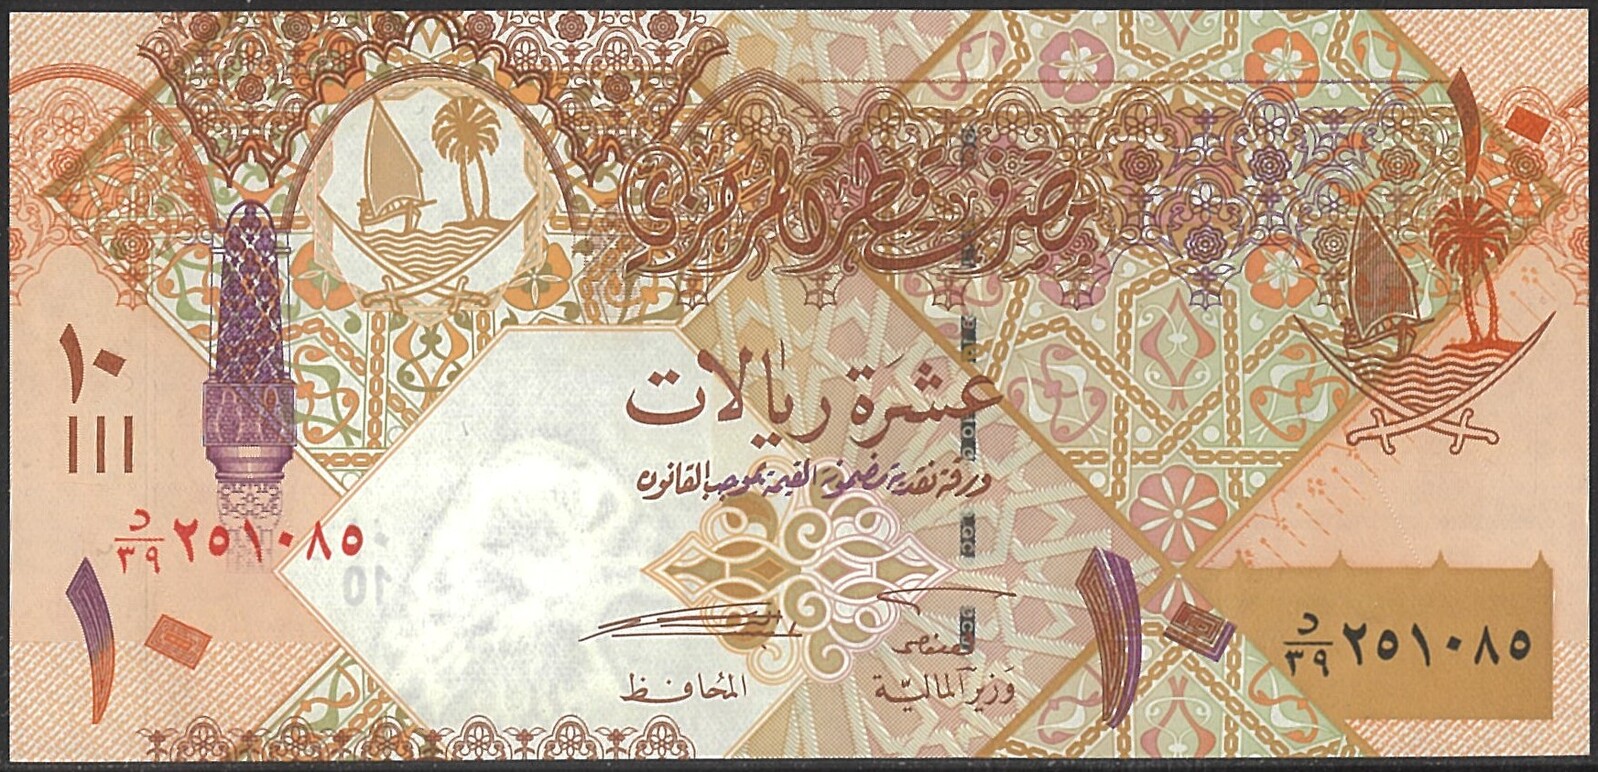 ١٠
مصرف قطر المركزي
١٠
عشرة ريالات
ورقة نقدية مضمونة القيمة بموجب القانون
د/٣٩ ٢٥١٠٨٥
10
١٠
١٠
د/٣٩ ٢٥١٠٨٥
المحافظ
وزير المالية